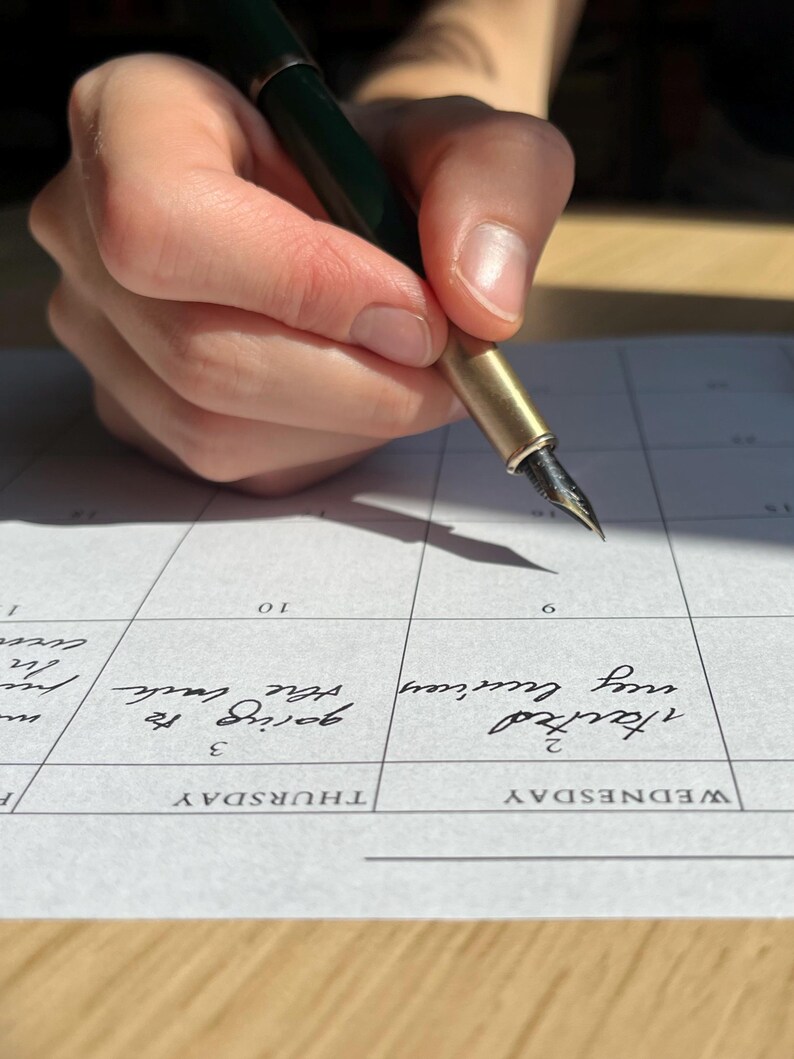 WEDNESDAY THURSDAY
2 3
started going to
my business the bank
In
9 10
15 16 17 18